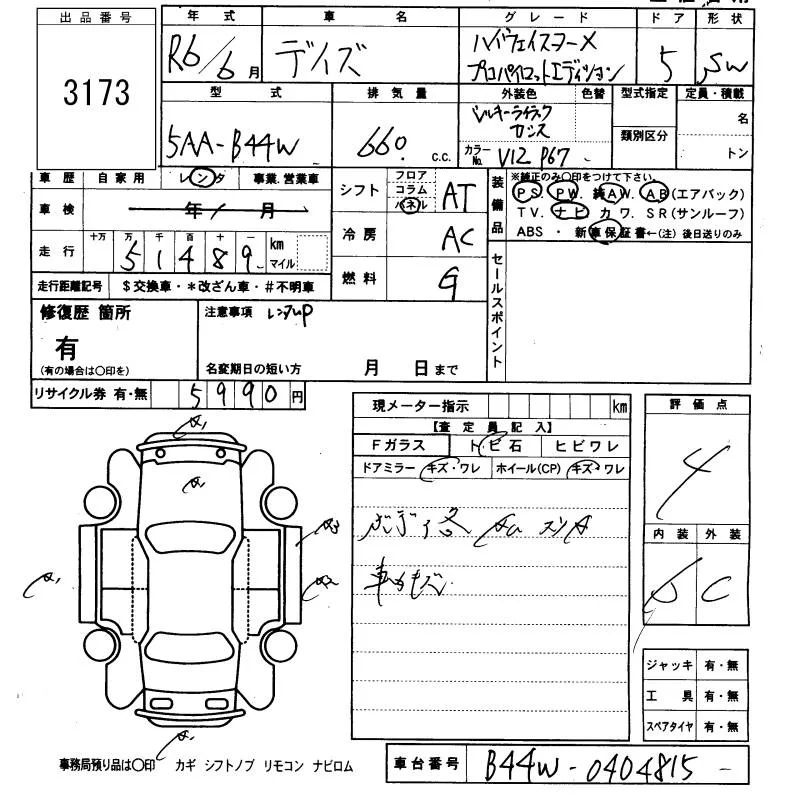 出品番号 3173
年式 R6/6月
車名 デイズ
グレード ハイウェイスターX プロパイロットエディション
ドア 5
形状 SW
型式 5AA-B44W
排気量 660. C.C.
外装色
カシス
色替
カラーNo. V12 P67
型式指定
類別区分
定員・積載
名
トン
車歴 自家用 レンタ 事業.営業車
車検 年 月
走行 十万 万 千 百 十 一 51489 km マイル
走行距離記号 $交換車・*改ざん車・#不明車
シフト フロア コラム パネル AT
冷房 AC
燃料 G
装備品 ※純正のみ○印をつけて下さい。
PS. PW. 純AW. AB(エアバック)
TV. ナビ カワ. SR(サンルーフ)
ABS ・ 新車保証書←(注) 後日送りのみ
セールスポイント
修復歴 箇所
有
(有の場合は○印を)
注意事項 レンタUP
名変期日の短い方 月 日まで
リサイクル券 有・無 5990円
現メーター指示 km
【査定員記入】
Fガラス トビ石 ヒビワレ
ドアミラー キズ・ワレ ホイール(CP) キズ・ワレ
評価点
4
内装 外装
C
A1
A1
A3
A2
A1
A1
ジャッキ 有・無
工具 有・無
スペアタイヤ 有・無
事務局預り品は○印 カギ シフトノブ リモコン ナビロム
車台番号 B44W-0404815-